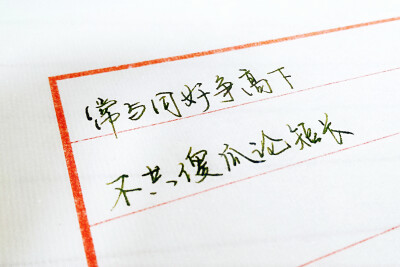 常与同好争高下
不共傻瓜论短长